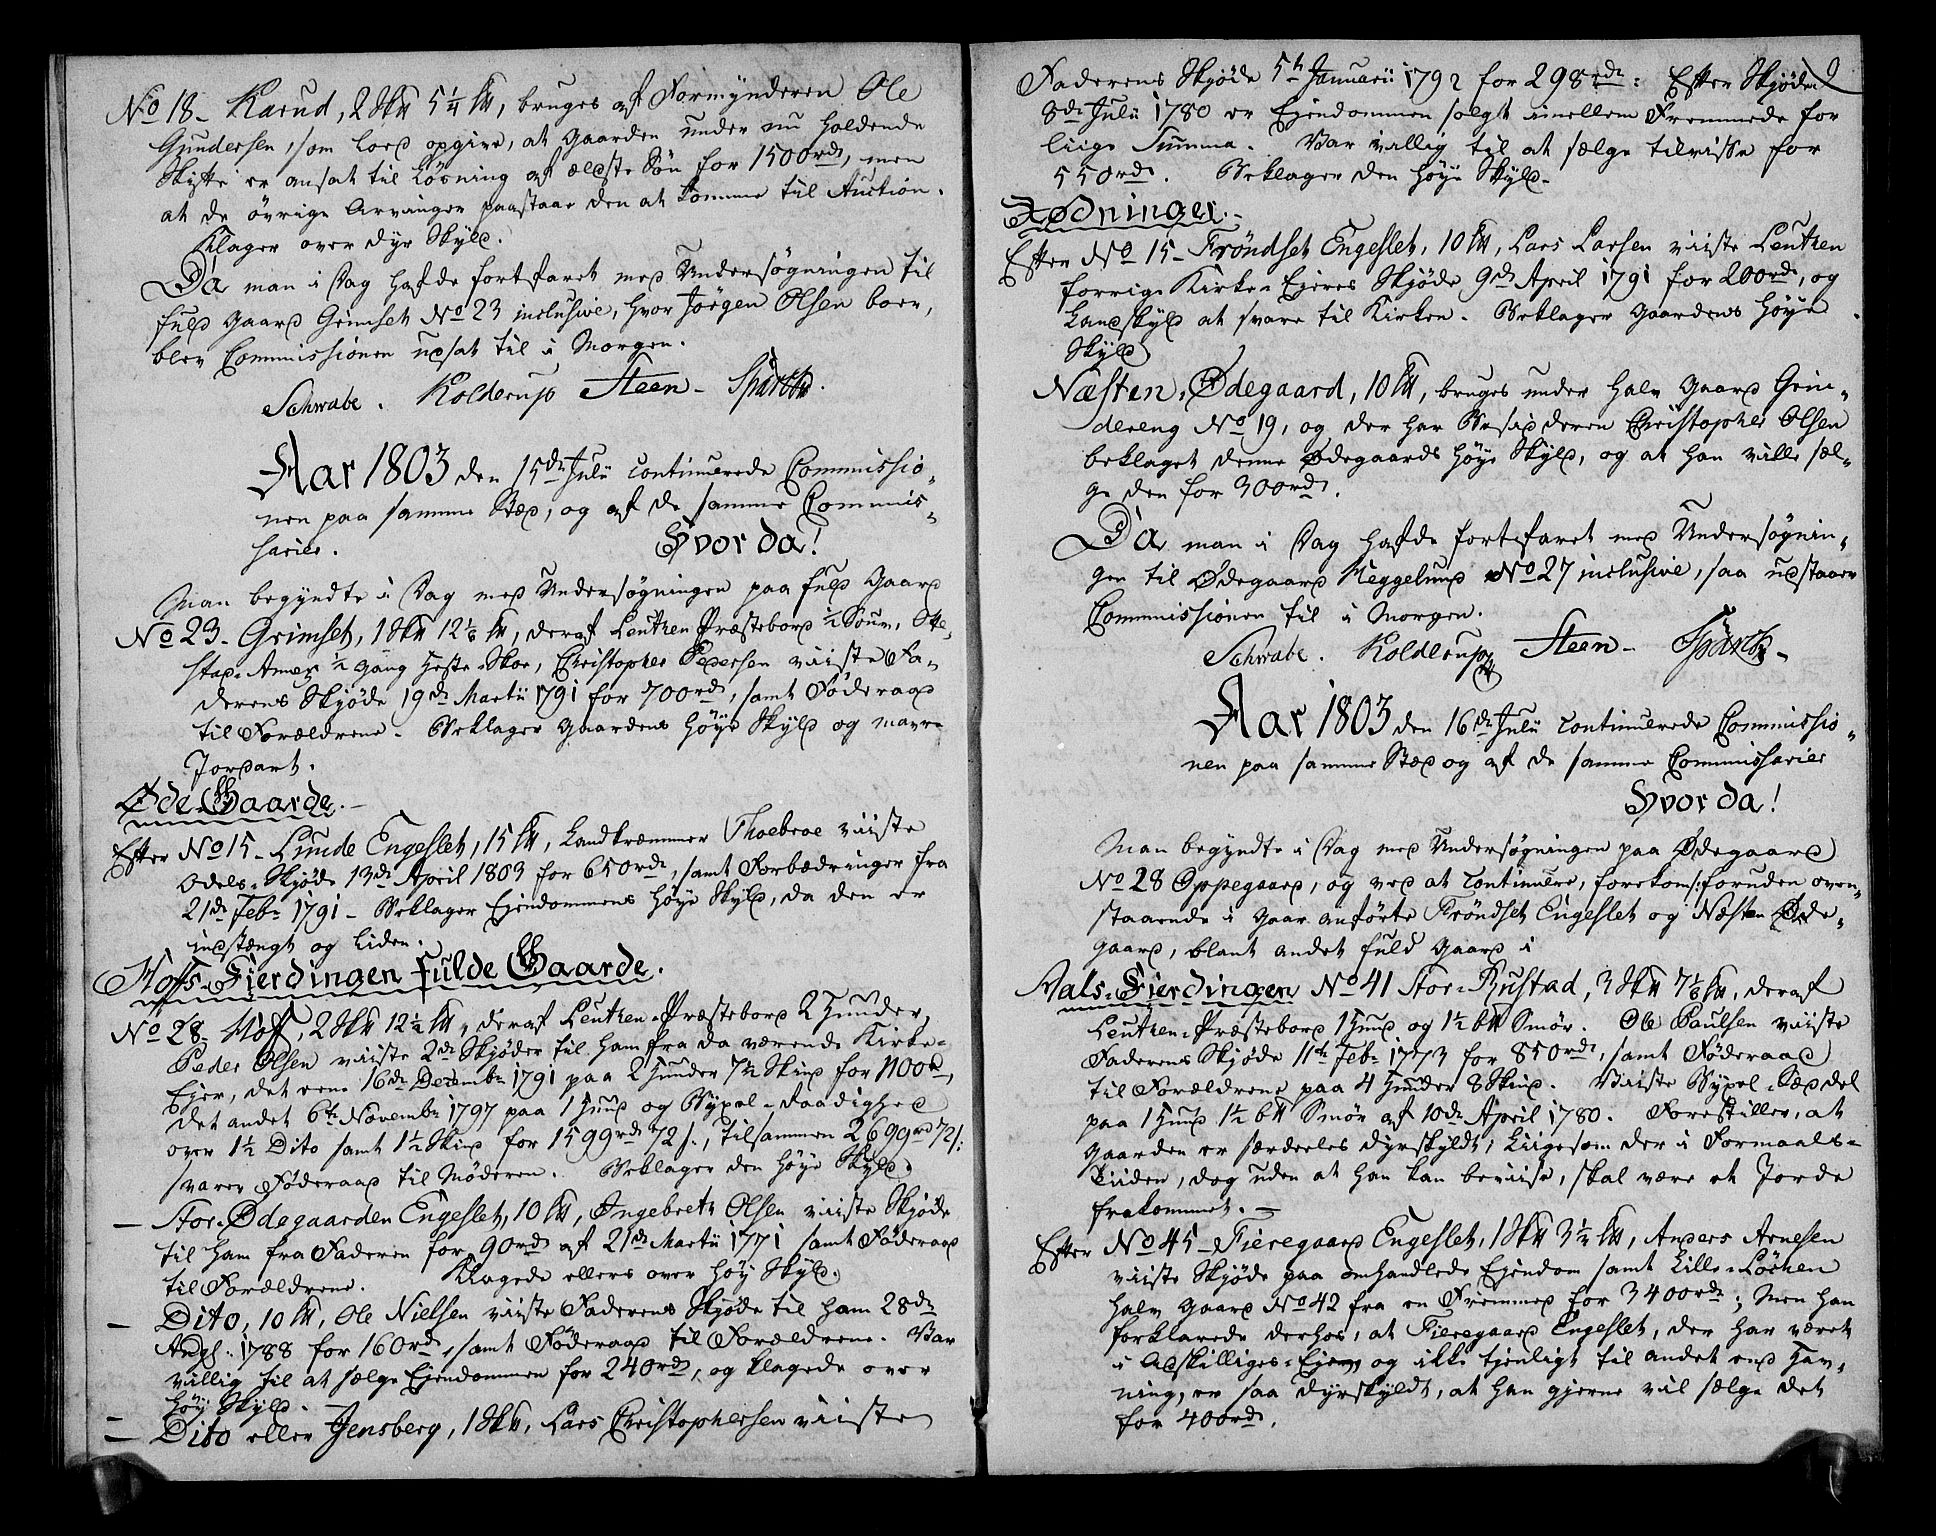 No 18- Karud, 2 Skll 5 1/4 ll, bruges af Formynderen Ole
Gundersen, som lod opgive, at Gaarden under nu holdende
Skifte er ansat til Løsning af ælste Søn for 1500rd, men
at de øvrige Arvinger paastaar den at komme til Auction.
Klager over dyr Skyld.
Da man i Dag hafde fortfaret med Undersøgningen til
fuld Gaard Grimset No 23 inclusive, hvor Jørgen Olsen boer,
blev Commissionen udsat til i Morgen.
Schwabe. Kolderup Steen- Spärck.
Aar 1803 den 15de Julii continuerede Commissio-
nen paa samme Sted, og af de samme Commis-
sarier. Hvor da!
Man begyndte i Dag med Undersøgningen paa fuld Gaard
No 23- Grimset, 1 Skll 12 1/8 ll, deraf Leuthen Præstebord 1/2 Souv, Ole-
stad-Annex 1/2 gang Heste-Skoe, Christopher Pedersen viiste Fa-
derens Skjøde 19de Martii 1791 for 700rd, samt Føderaad
til Forældrene. Beklager Gaardens høye Skyld og maure
Jordart.
Øde-Gaarde.-
Efter No 15- Lunde Engeslet, 15 ll, Landkræmmer Thoebroe viiste
Odels-Skjøde 13de April 1803 for 650rd, samt Forbedringer fra
21de Febr 1791- Beklager Ejendommens høye Skyld, da den er
indstængt og liden.
Moss-Fierdingen fulde Gaarde.
No 28- Moss, 2 Skll 12 1/2 ll, deraf Leuthen-Præstebord 2 Huder,
Peder Olsen viiste 2de Skjøder til ham fra da værende Kirke-
Ejer, det eene 16de Decembr 1791 paa 2 Huder 7 1/2 Skind for 1100rd,
det andet 6te Novembr 1797 paa 1 Hud og Bygsel-Raadighed
over 1 1/2 Dito samt 1 1/2 Skind for 1599rd 72 s., tilsammen 2699rd 72 s:
svarer Føderaad til Moderen. Beklager den høye Skyld.
- Stor-Ødegaarden Engeslet, 10 ll, Ingebreth Olsen viiste Skjøde
til ham fra Faderen for 90rd af 21de Martii 1771 samt Føderaad
til Forældrene. Klagede ellers over høy Skyld.
- Dito, 10 ll, Ole Nielsen viiste Faderens Skjøde til ham 28de
Augs. 1788 for 160rd, samt Føderaad til Forældrene. Var
villig til at sælge Ejendommen for 240rd, og klagede over
høy Skyld.-
= Dito eller Jensberg, 1 Skll, Lars Christophersen viiste
Faderens Skjøde 5te Januarii 1792 for 298rd: Efter Skjøde
8de Julii 1780 er Ejendommen solgt imellem Fremmede for
liige Summa. Var villig til at sælge tilvisse for
550rd. Beklager den høye Skyld.
Rødninger.-
Efter No 15- Trøndset Engeslet, 10 ll, Lars Larsen viiste Leuthen
forrige Kirke-Ejeres Skjøde 9de April 1791 for 200rd, og
Landskyld at svare til Kirken. Beklager Gaardens høye
Skyld.
Næsten-Ødegaard, 10 ll, bruges under halv Gaard Grin-
dereng No 19, og der har Besidderen Christopher Olsen
beklaget denne Ødegaards høye Skyld, og at han ville sæl-
ge den for 300rd.
Da man i Dag hafde fortfaret med Undersøgnin-
gen til Ødegaard Meggelund No 27 inclusive, saa udstaaer
Commmissionen til i Morgen.
Schwabe. Kolderup Steen- Spärck-
Aar 1803 den 16de Julii continuerede Commissio-
nen paa samme Sted og af de samme Commissarier
Hvor da!
Man begyndte i Dag med Undersøgningen paa Ødegaard
No 28 Oppegaard, og ved at continuere, forekom /:foruden oven-
staaende i Gaar anførte Trøndset Engeslet og Næsten Øde-
gaard, blant andet fuld Gaard i
Aals-Fierdingen No 41 Stor-Rustad, 3 Skll 7 1/8 ll, deraf
Leuthen-Præstebord 1 Hud og 1 1/2 bll Smør. Ole Paulsen viiste
Faderens Skjøde 11te Febr 1773 for 850rd, samt Føderaad
til Forældrene paa 4 Huder 8 Skind. Viiste Bygsel-Sæddel
paa 1 Hud 1 1/2 bll Smør af 10de April 1780. Forestiller, at
Gaarden er særdeeles dyrskyldt, liigesom der i Formaals-
Tiiden, dog uden at han kan beviise, skal være et Jorde
frakommet.-
Efter No 45- Fieregaard Engeslet, 1 Skll 3 1/2 ll, Anders Arnesen
viiste Skjøde paa omhandlede Ejendom samt Lille-Løchen
halv Gaard No 42 fra en Fremmed for 3400rd; Men han
forklarede derhos, at Fieregaard Engeslet, der har været
i Adskilliges-Eje og ikke tjenligt til andet end Hav-
ning, er saa dyrskyldt, at han gjerne vil sælge det
for 400rd.